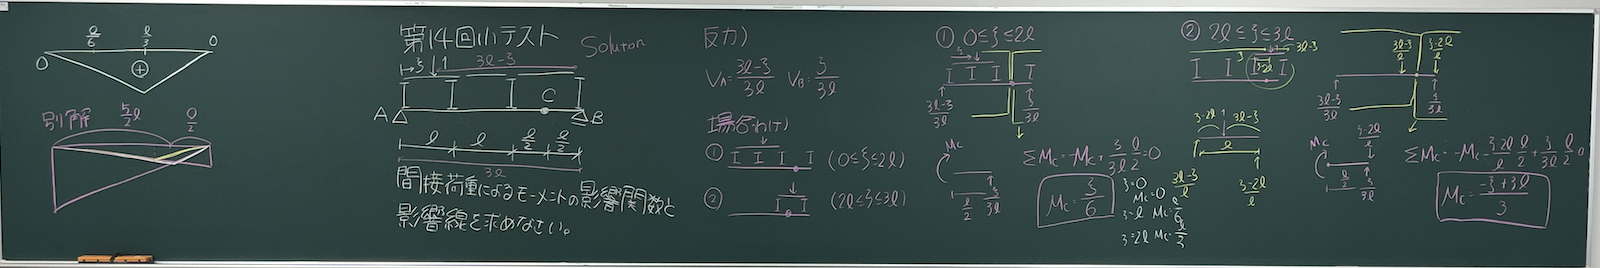 0
ℓ/6
ℓ/3
0
⊕
別解
5/2ℓ
ℓ/2
第14回小テスト
Solution
ξ 1 3ℓ-ξ
A C B
ℓ ℓ ℓ/2 ℓ/2
3ℓ
間接荷重によるモーメントの影響関数と
影響線を求めなさい。
反力)
V_A = (3ℓ-ξ)/3ℓ V_B = ξ/3ℓ
場合わけ)
① (0≤ξ≤2ℓ)
② (2ℓ≤ξ≤3ℓ)
① 0≤ξ≤2ℓ
ξ
(3ℓ-ξ)/3ℓ ξ/3ℓ
Mc
ℓ/2 ξ/3ℓ
ΣMc = -Mc + ξ/3ℓ ℓ/2 = 0
Mc = ξ/6
ξ=0 Mc=0
ξ=ℓ Mc=ℓ/6
ξ=2ℓ Mc=ℓ/3
② 2ℓ≤ξ≤3ℓ
ξ 3ℓ-ξ
ξ-2ℓ
ξ-2ℓ 1 3ℓ-ξ
ℓ
(3ℓ-ξ)/ℓ (ξ-2ℓ)/ℓ
(3ℓ-ξ)/ℓ (ξ-2ℓ)/ℓ
(3ℓ-ξ)/3ℓ ξ/3ℓ
Mc (ξ-2ℓ)/ℓ
ℓ/2 ξ/3ℓ
ΣMc = -Mc - (ξ-2ℓ)/ℓ ℓ/2 + ξ/3ℓ ℓ/2 = 0
Mc = (-ξ+3ℓ)/3